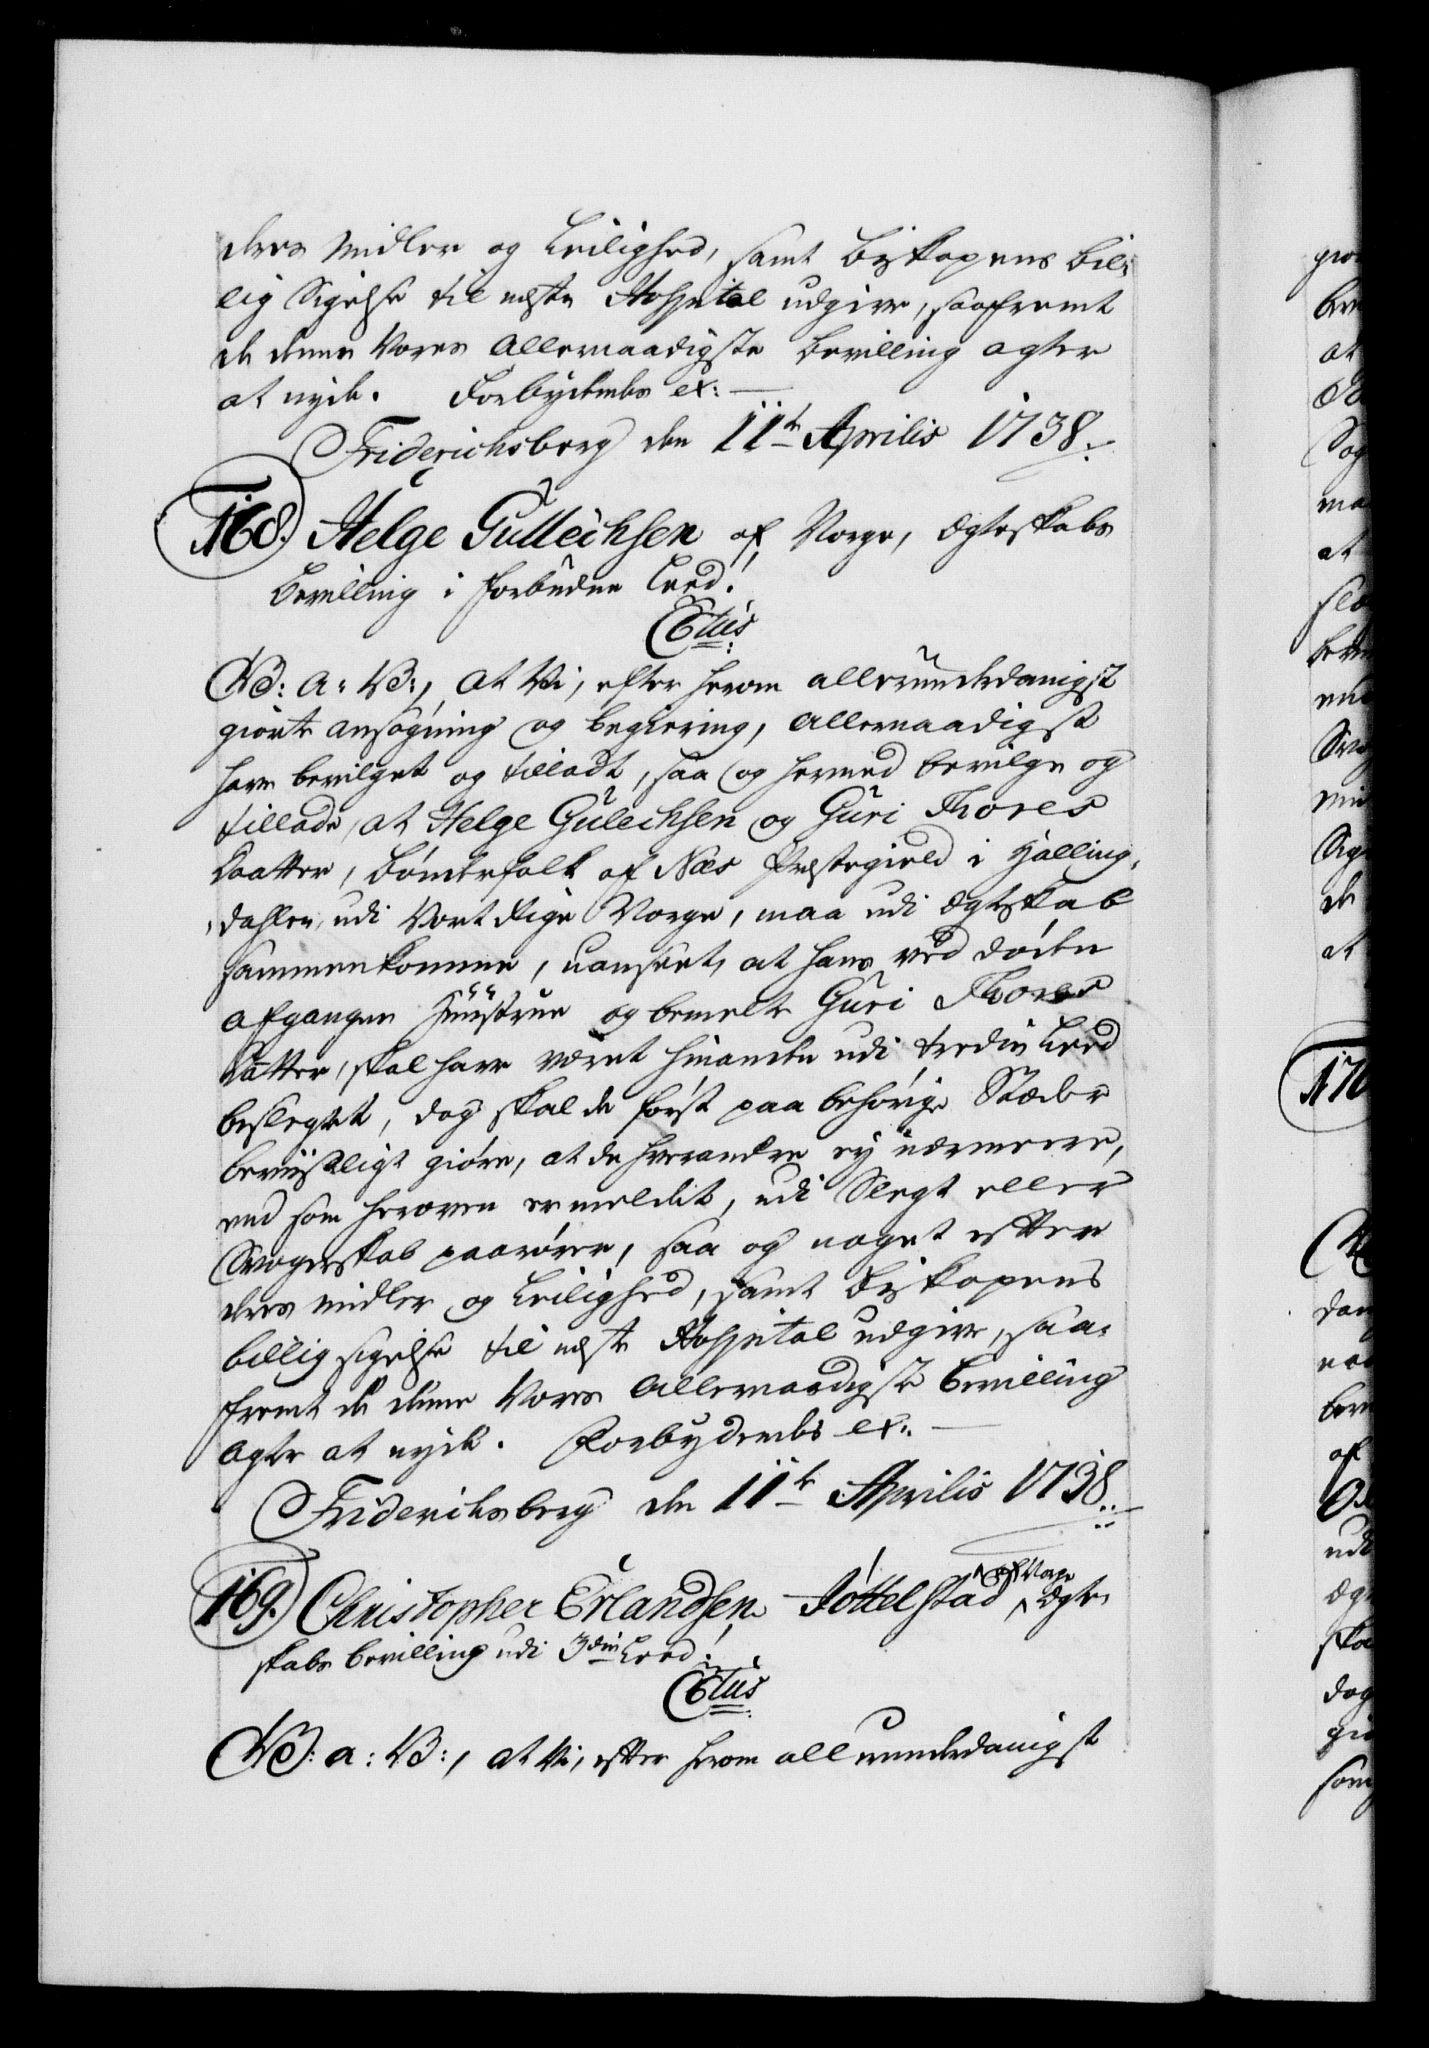 deres Midler og Leilighed, samt Biskopens bil-
lig Sigelse til neste Hospital udgive, saafremt
de denne Vores allernaadigste bevilling agter
at nyde. Forbydendes etc:
Friderichsberg den 11te Aprilis 1738.
168. Helge Gullechsen af Norge, Ægteskabs
bevilling i forbudne Leed.
C6tus
W: a: B:, at Vi, efter herom allerunderdanigst
giorte ansøgning og begiering, allernaadigst
have bevilget og tilladt, saa og hermed bevilge og
tillade, at Helge Gulechsen og Guri Thores
Daatter, bønderfolk af Næs Præstegield i Halling-
dahlen, udi Vort Rige Norge, maa udi Ægteskab
sammenkomme, uanseet, at hans ved døden
afgangne Huustrue og bemelte Guri Thores
Datter, skal have været hinanden udi tredie Leed
beslegtet, dog skal de først paa behørige Stæder
beviisligt giøre, at de hverandre ey nærmere,
end som heroven ermeldet, udi Slegt eller
Svogerskab paarører, saa og noget efter
deres midler og Leilighed, samt Biskopens
billig sigelse til neste Hospital udgive, saa-
fremt de denne Vores allernaadigste bevilling
agter at nyde. Forbydendes etc:
Friderichsberg den 11te Aprilis 1738.
169. Christopher Erlandsen Jøttelstad af Norge Ægte-
skabs bevilling udi 3die Leed.
C6tus
W: a: B:, at Vi, efter herom allerunderdanigst